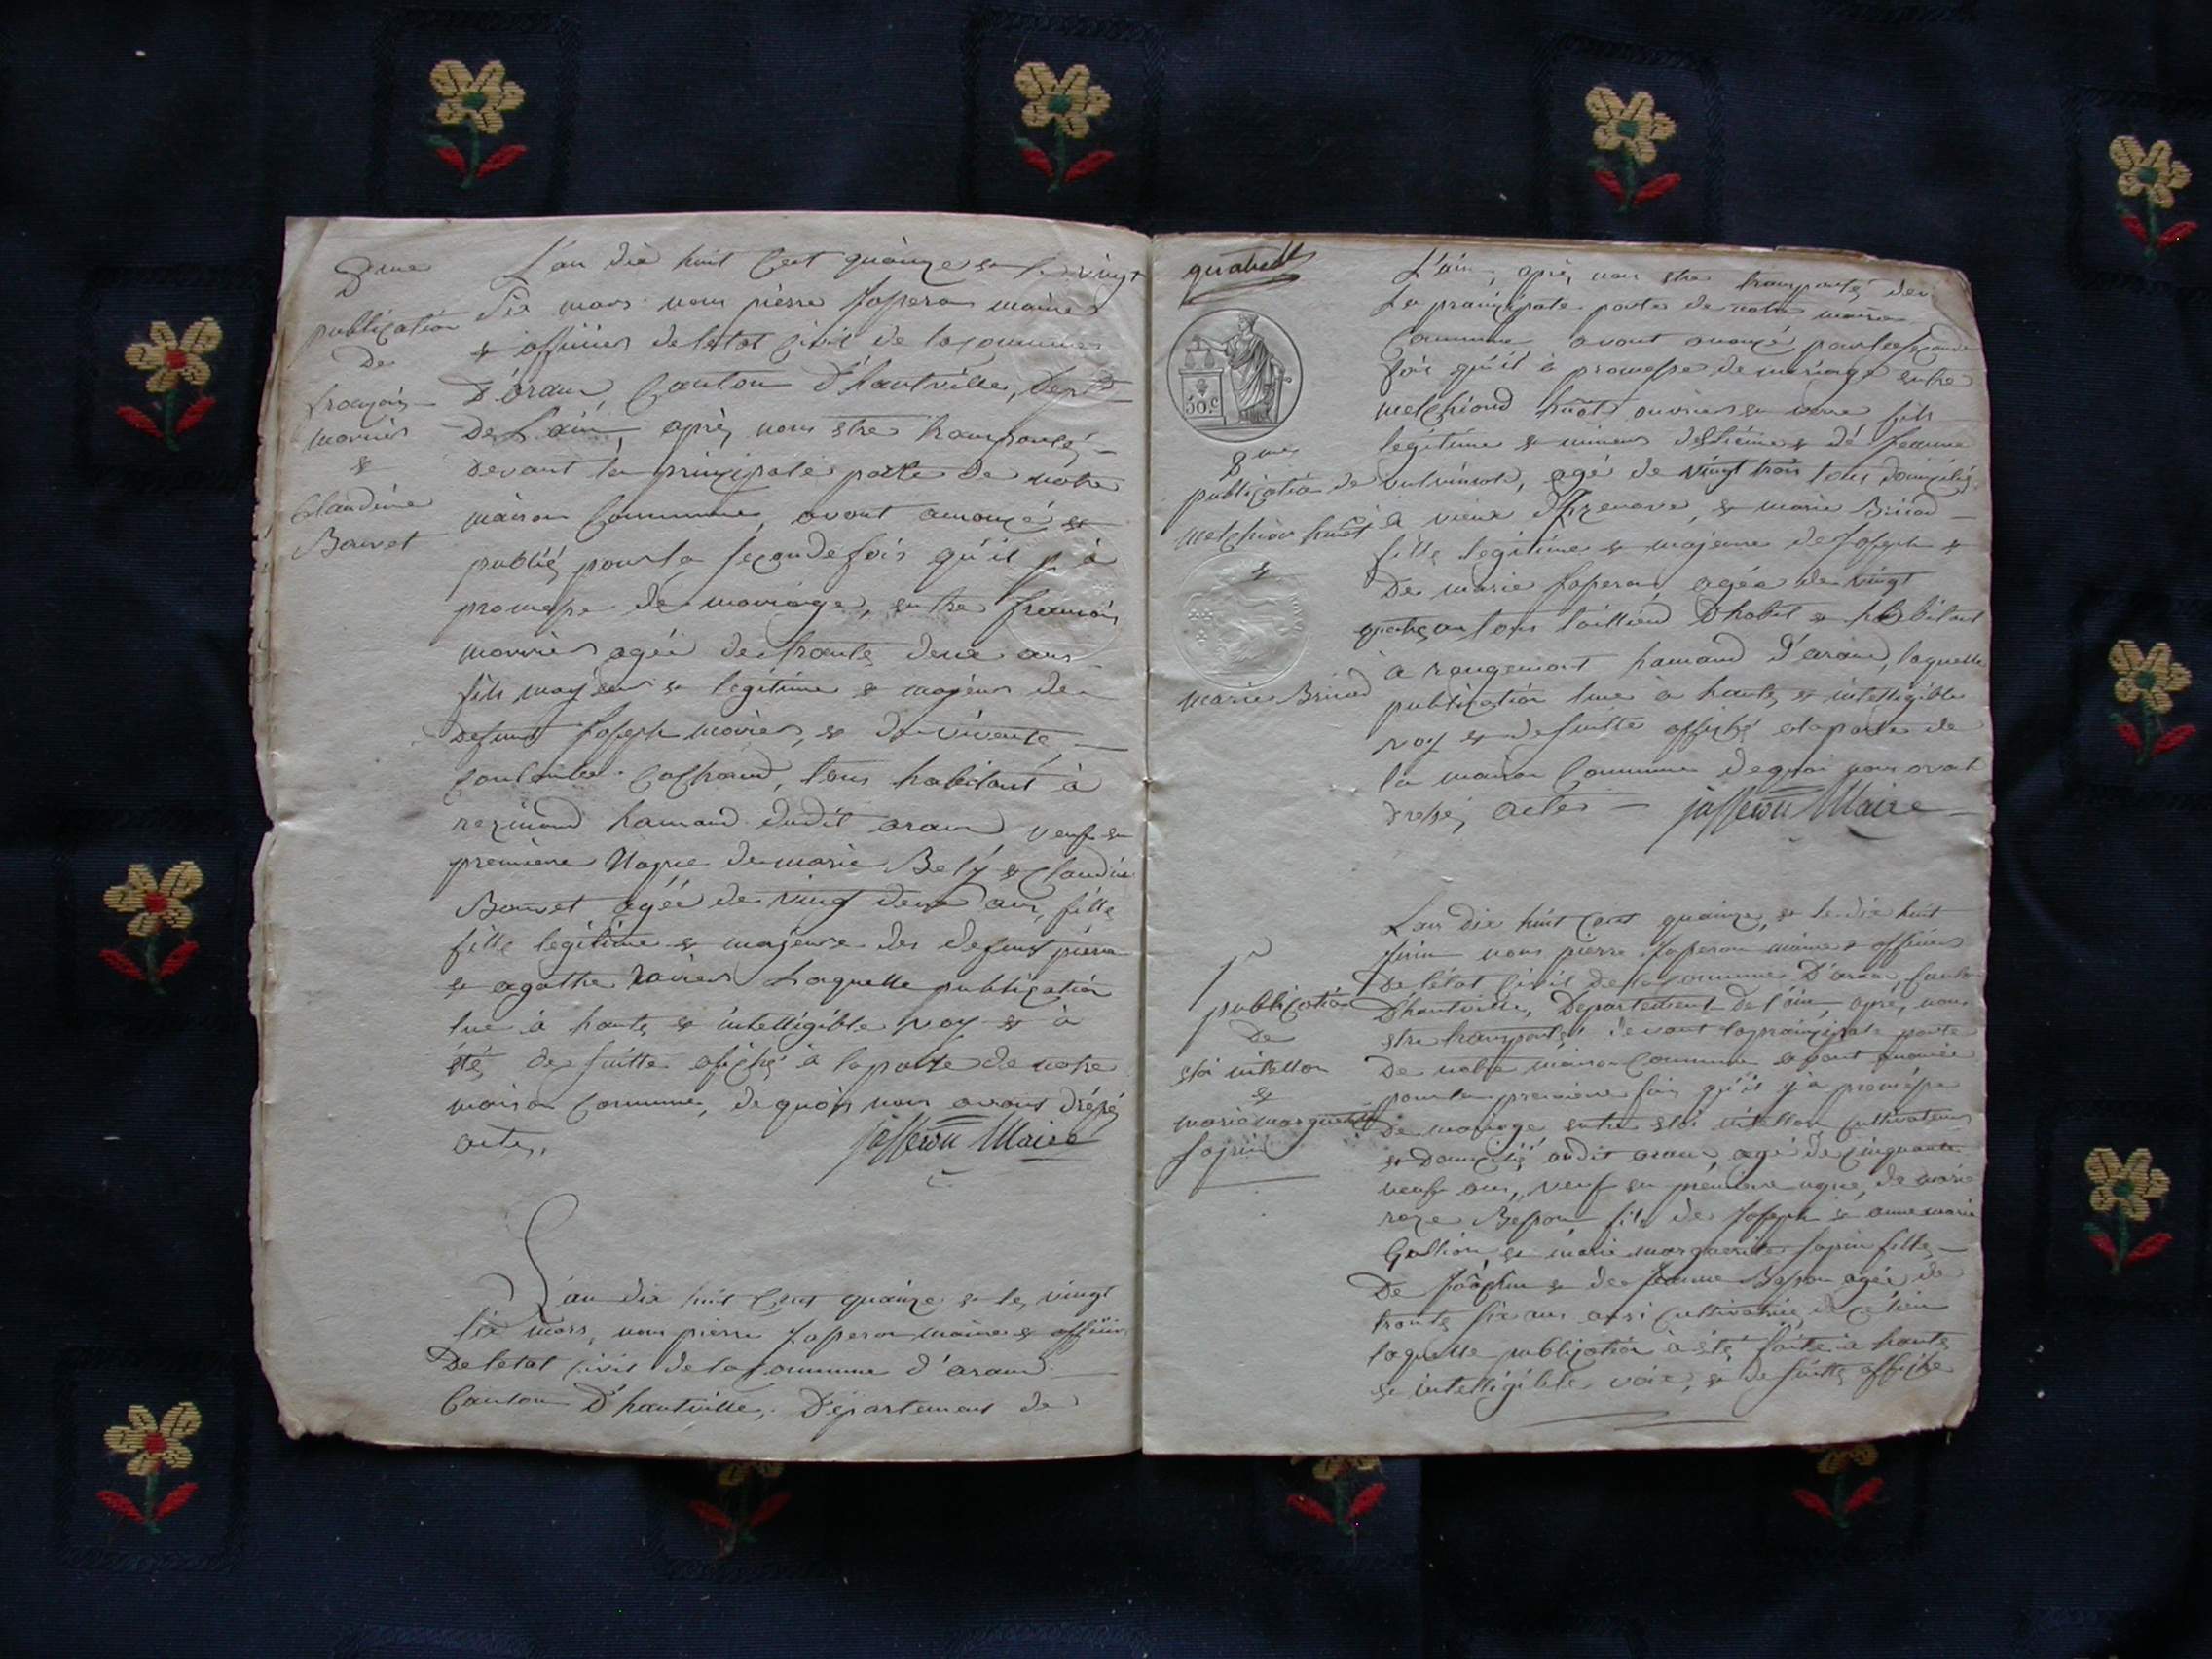 2me
publication
De
françois
mariés
&
Claudine
Bouvet
L'an dix huit Cent quainze & le vingt
Six mars nous pierre Josseron maire
& officier deletat Civil de la commune
D'aran, Canton D'hautville, Dept
De L'ain, après nous estre transporté
devant la principale porte de notre
maison Commune, avont anoncé &
publié pour la seconde fois qu'il y à
promesse de mariage, entre francois
agée de trante deux ans
fils & legitime & majeur de
Defunt Joseph & De vivante
tous habitant à
hamaud dudit aran veuf en
première Nopce de marie Bely & Claudine
Bouvet agée de vingt deux ans, fille
fille legitime & majeure des defunt pierre
& agathe Laquelle publication
lue à haute & intelligible voy & à
été de suitte afiché à la porte de notre
maison Commune, de quoi nous avons dréssé
acte,
josseron Maire
L'an dix huit Cent quainze & le vingt
six mars, nous pierre Josseron maire & officier
De letat civil de la Commune d'aran
Canton D'hautville, Département de
50 C.
2me
publication de
melchior huet
&
marie Brinod
L'ain, après nous estre transporté dev.
La principale porte de notre maison
Commune avont anoncé pour la seconde
fois qu'il à promesse de mariage entre
melchiord huot ouvrier en fils
legitime & mineur & de Jeanne
agé de vingt trois tous domicilié
a vieux & marie Brinod
fille legitime & majeure de Joseph &
De marie Josseron agée de vingt
D'habit & habitant
à rougemont hamaud D'aran, laquelle
publication lue à haute & intelligible
voy & de suitte affiché à la porte de
la maison Commune De quoi nous avont
dressé acte josseron Maire
1r
publication
De
&
marie marguerite
L'an dix huit Cent quainze, & le dix huit
Juin nous pierre Josseron maire & officier
De l'état Civil de la Commune D'aran Canton
D'hautville, Département de l'ain, après nous
estre transporté devant la principale porte
De notre maison Commune avont anoncé
pour la premiere fois qu'il y à promesse
De mariage entre cultivateur
& Domicilié audit aran agé de cinquante
neuf ans, veuf en première nopce, de marie
fils de Joseph & anne marie
& marie marguerite fille
De & de Jeanne agée de
trante six ans aussi Cultivatrice de ce lieu
laquelle publication à été faite à haute
& intelligible voix, & de suitte affiche